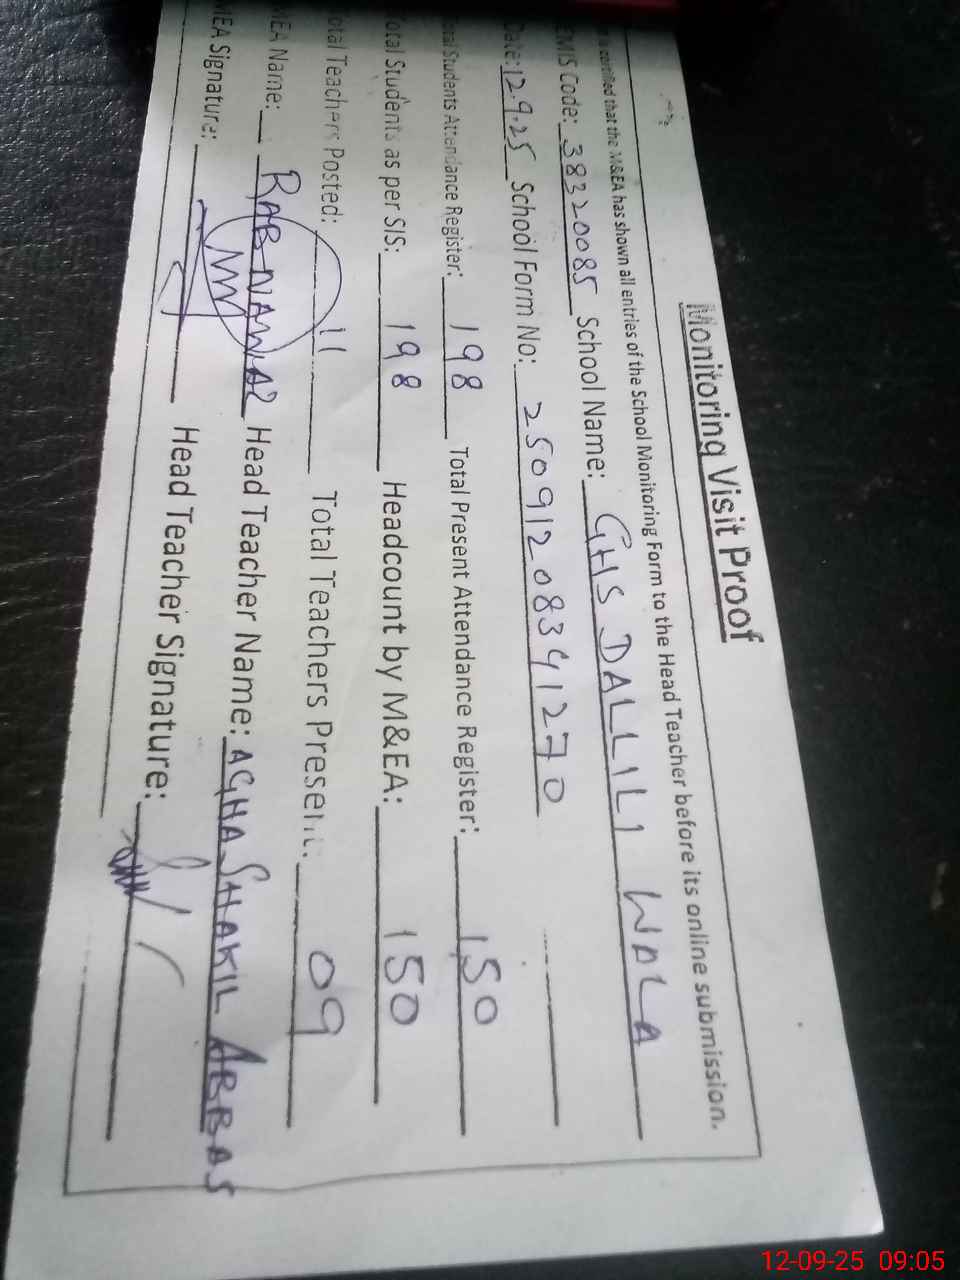 Monitoring Visit Proof
is certified that the M&EA has shown all entries of the School Monitoring Form to the Head Teacher before its online submission.
EMIS Code: 38320085 School Name: GHS DALLILI WALA
Date: 12.9.25 School Form No: 25091208341270
Total Students Attendance Register: 198 Total Present Attendance Register: 150
Total Students as per SIS: 198 Headcount by M&EA: 150
Total Teachers Posted: 11 Total Teachers Present: 09
MEA Name: RAB NAWAZ Head Teacher Name: AGHA SHAKIL ABBAS
MEA Signature: Head Teacher Signature:
12-09-25 09:05